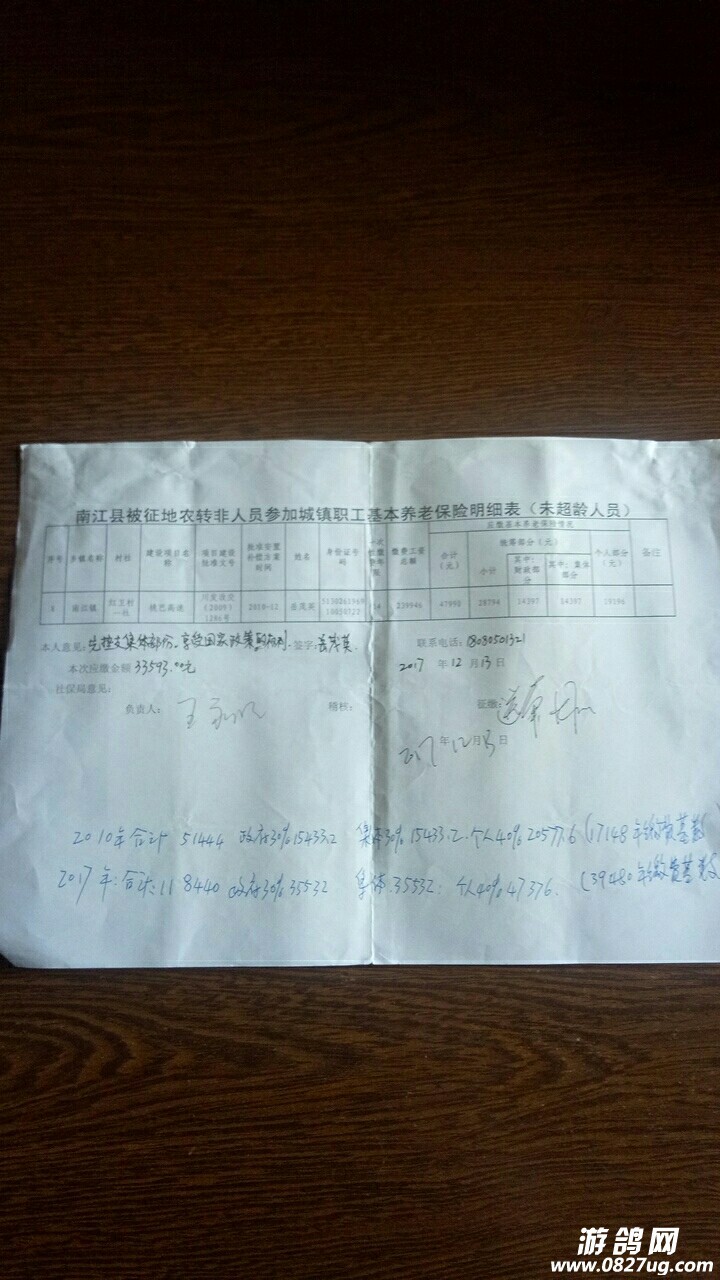 南江县被征地农转非人员参加城镇职工基本养老保险明细表（未超龄人员）
应缴基本养老保险情况
序号 乡镇名称 村社 建设项目名称 项目建设批准文号 批准安置补偿方案时间 姓名 身份证号码 一次性缴费年限 缴费工资总额 合计（元） 统筹部分（元） 个人部分（元） 备注
小计 其中：财政部分 其中：集体部分
1 南江镇 红卫村一社 桃巴高速 川发改交（2009）1286号 2010-12 岳茂英 14 239946 47990 28794 14397 14397 19196
本人意见：先挂支集体部份，享受国家政策的权利. 签字：岳茂英. 联系电话：18080501321
本次应缴金额 33593.00元 2017 年 12 月 13 日
社保局意见：
负责人： 稽核： 征缴：
2017 年 12 月 13 日
2010年合计 51444 政府30%15433.2 集体30%15433.2. 个人40%20577.6 (17148年缴费基数
2017年：合计：118440 政府30%35532 集体.35532: 个人40%47376. (39480年缴费基数)
游鸽网
www.0827ug.com